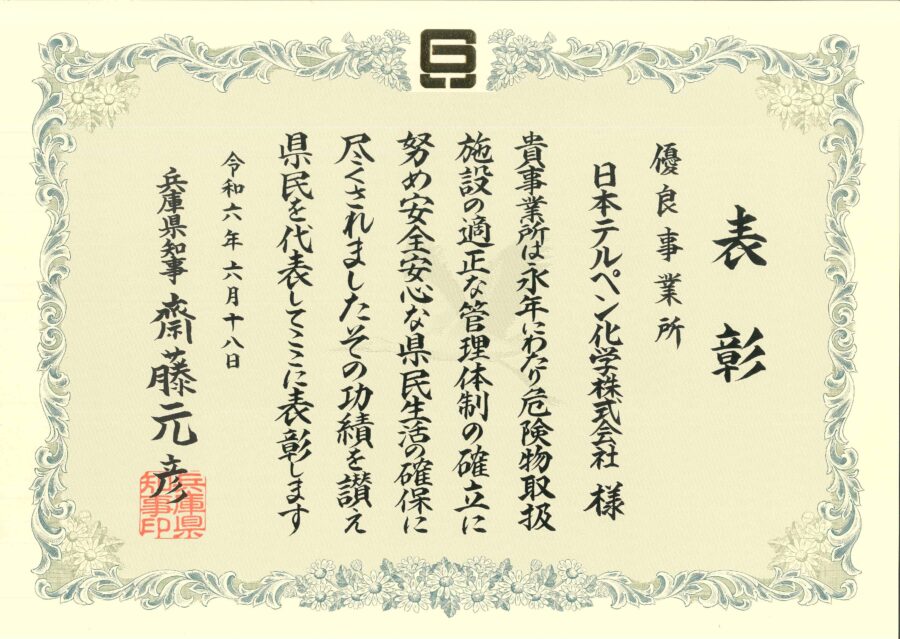 表彰
優良事業所
日本テルペン化学株式会社 様
貴事業所は永年にわたり危険物取扱
施設の適正な管理体制の確立に
努め安全安心な県民生活の確保に
尽くされましたその功績を讃え
県民を代表してここに表彰します
令和六年六月十八日
兵庫県知事 齋藤元彦
兵庫県
知事印